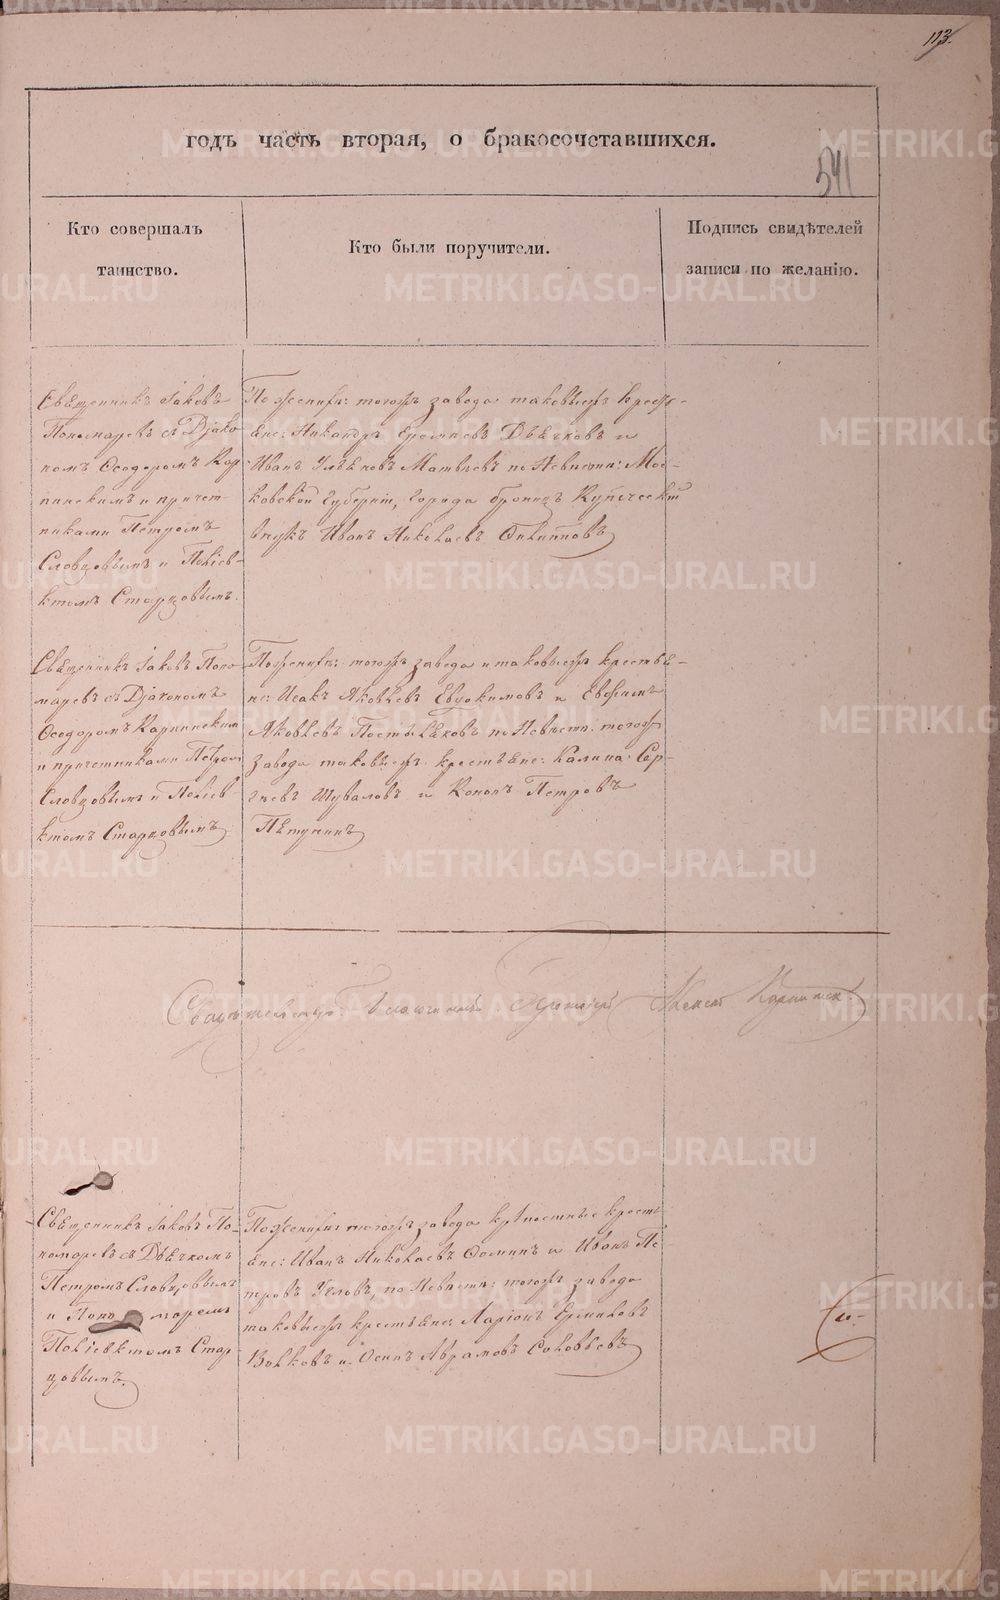 113.
годъ часть вторая, о бракосочетавшихся.
541
Кто совершалъ
таинство.
Кто были поручители.
Подпись свидѣтелей
записи по желанію.
Священникъ Іаковъ
Пономаревъ съ Діако
номъ Ѳеодоромъ Кар
пинскимъ и причет-
никами Петромъ
Словцовымъ и Поліев-
ктомъ Старцовымъ.
По женихѣ: тогожъ завода таковыежъ кресть-
яне: Никандръ Еремѣевъ Дьячковъ и
Иванъ Матвѣевъ по невѣстѣ: Мос-
ковской Губерніи, города Бронницъ Купеческій
внукъ Иванъ Николаевъ Филипповъ
Священникъ Іаковъ Поно
маревъ съ Діакономъ
Ѳеодоромъ Карпинскимъ
и причетниками Петромъ
Словцовымъ и Поліев-
ктомъ Старцовымъ
По женихѣ: тогожъ завода и таковыежъ крестья-
не: Исакъ Яковлевъ Евдокимовъ и Евфимъ
Яковлевъ Постыляковъ по невѣстѣ: тогожъ
завода таковыежъ крестьяне: Калина Сер-
гѣевъ Шуваловъ и Кононъ Петровъ
Пѣтунинъ
Свидѣтельствую Благочинный Протоіерей Алексѣй Карпинскій
Священникъ Іаковъ По-
номаревъ съ Дьячкомъ
Петромъ Словцовымъ
и Пономаремъ
Поліевктомъ Стар
цовымъ.
По женихѣ: тогожъ завода крѣпостные кресть
яне: Иванъ Николаевъ Ѳоминъ и Иванъ Пе
тровъ Угловъ, по невѣстѣ: тогожъ завода
таковыежъ крестьяне: Ларіонъ Ермиловъ
Волковъ и Осипъ Аврамовъ Соловьевъ
METRIKI.GASO-URAL.RU